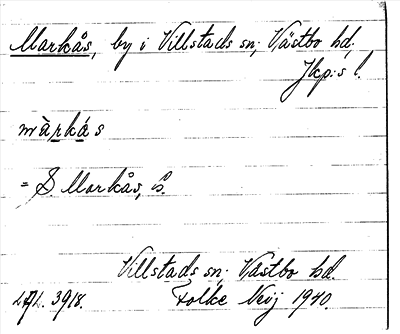 Markås, by i Villstads sn; Västbo hd,
Jkp:s l.
màrkás
= S Markås, s.
Villstads sn; Västbo hd.
LAL. 3918. Folke
1940.